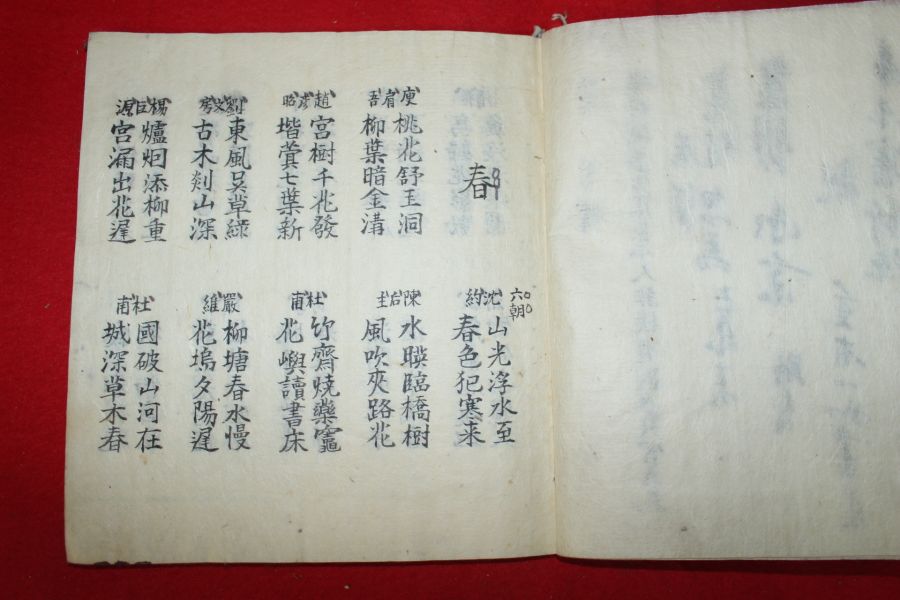 春
六朝
沈約
山光浮水至
春色犯寒来
庾肩吾
桃花舒玉洞
柳葉暗金溝
陳后主
水映臨橋樹
風吹夾路花
趙彦昭
宮樹千花發
堦蓂七葉新
杜甫
竹齋燒藥竈
花嶼讀書床
劉文房
東風吳草綠
古木剡山深
嚴維
柳塘春水慢
花塢夕陽遲
楊巨源
爐烟添柳重
宮漏出花遲
杜甫
國破山河在
城深草木春